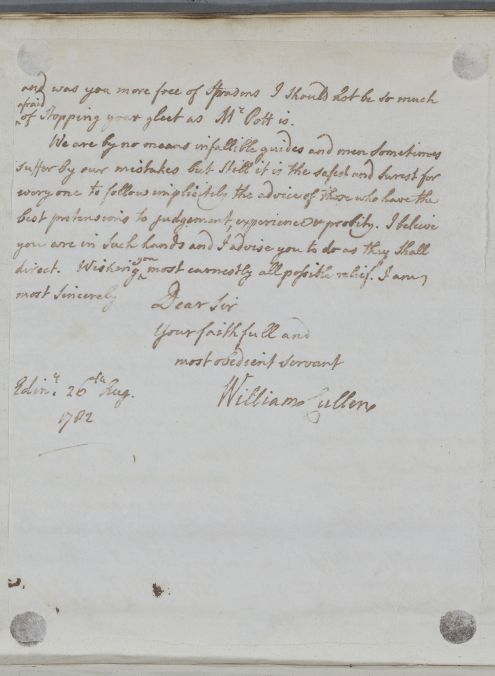 and was you more free of Spasms I should not be so much
afraid
of stopping your gleet as Mr Pott is.
We are by no means infallible guides and men sometimes
suffer by our mistakes but still it is the safest and surest for
every one to follow implicitely the advice of those who have the
best pretensions to judgement, experience or probity. I believe
you are in such hands and I advise you to do as they shall
direct. Wishing you most earnestly all possible relief. I am
most sincerely Dear Sir
Your faithfull and
most obedient servant
Edinr. 26th Aug. William Cullen
1782